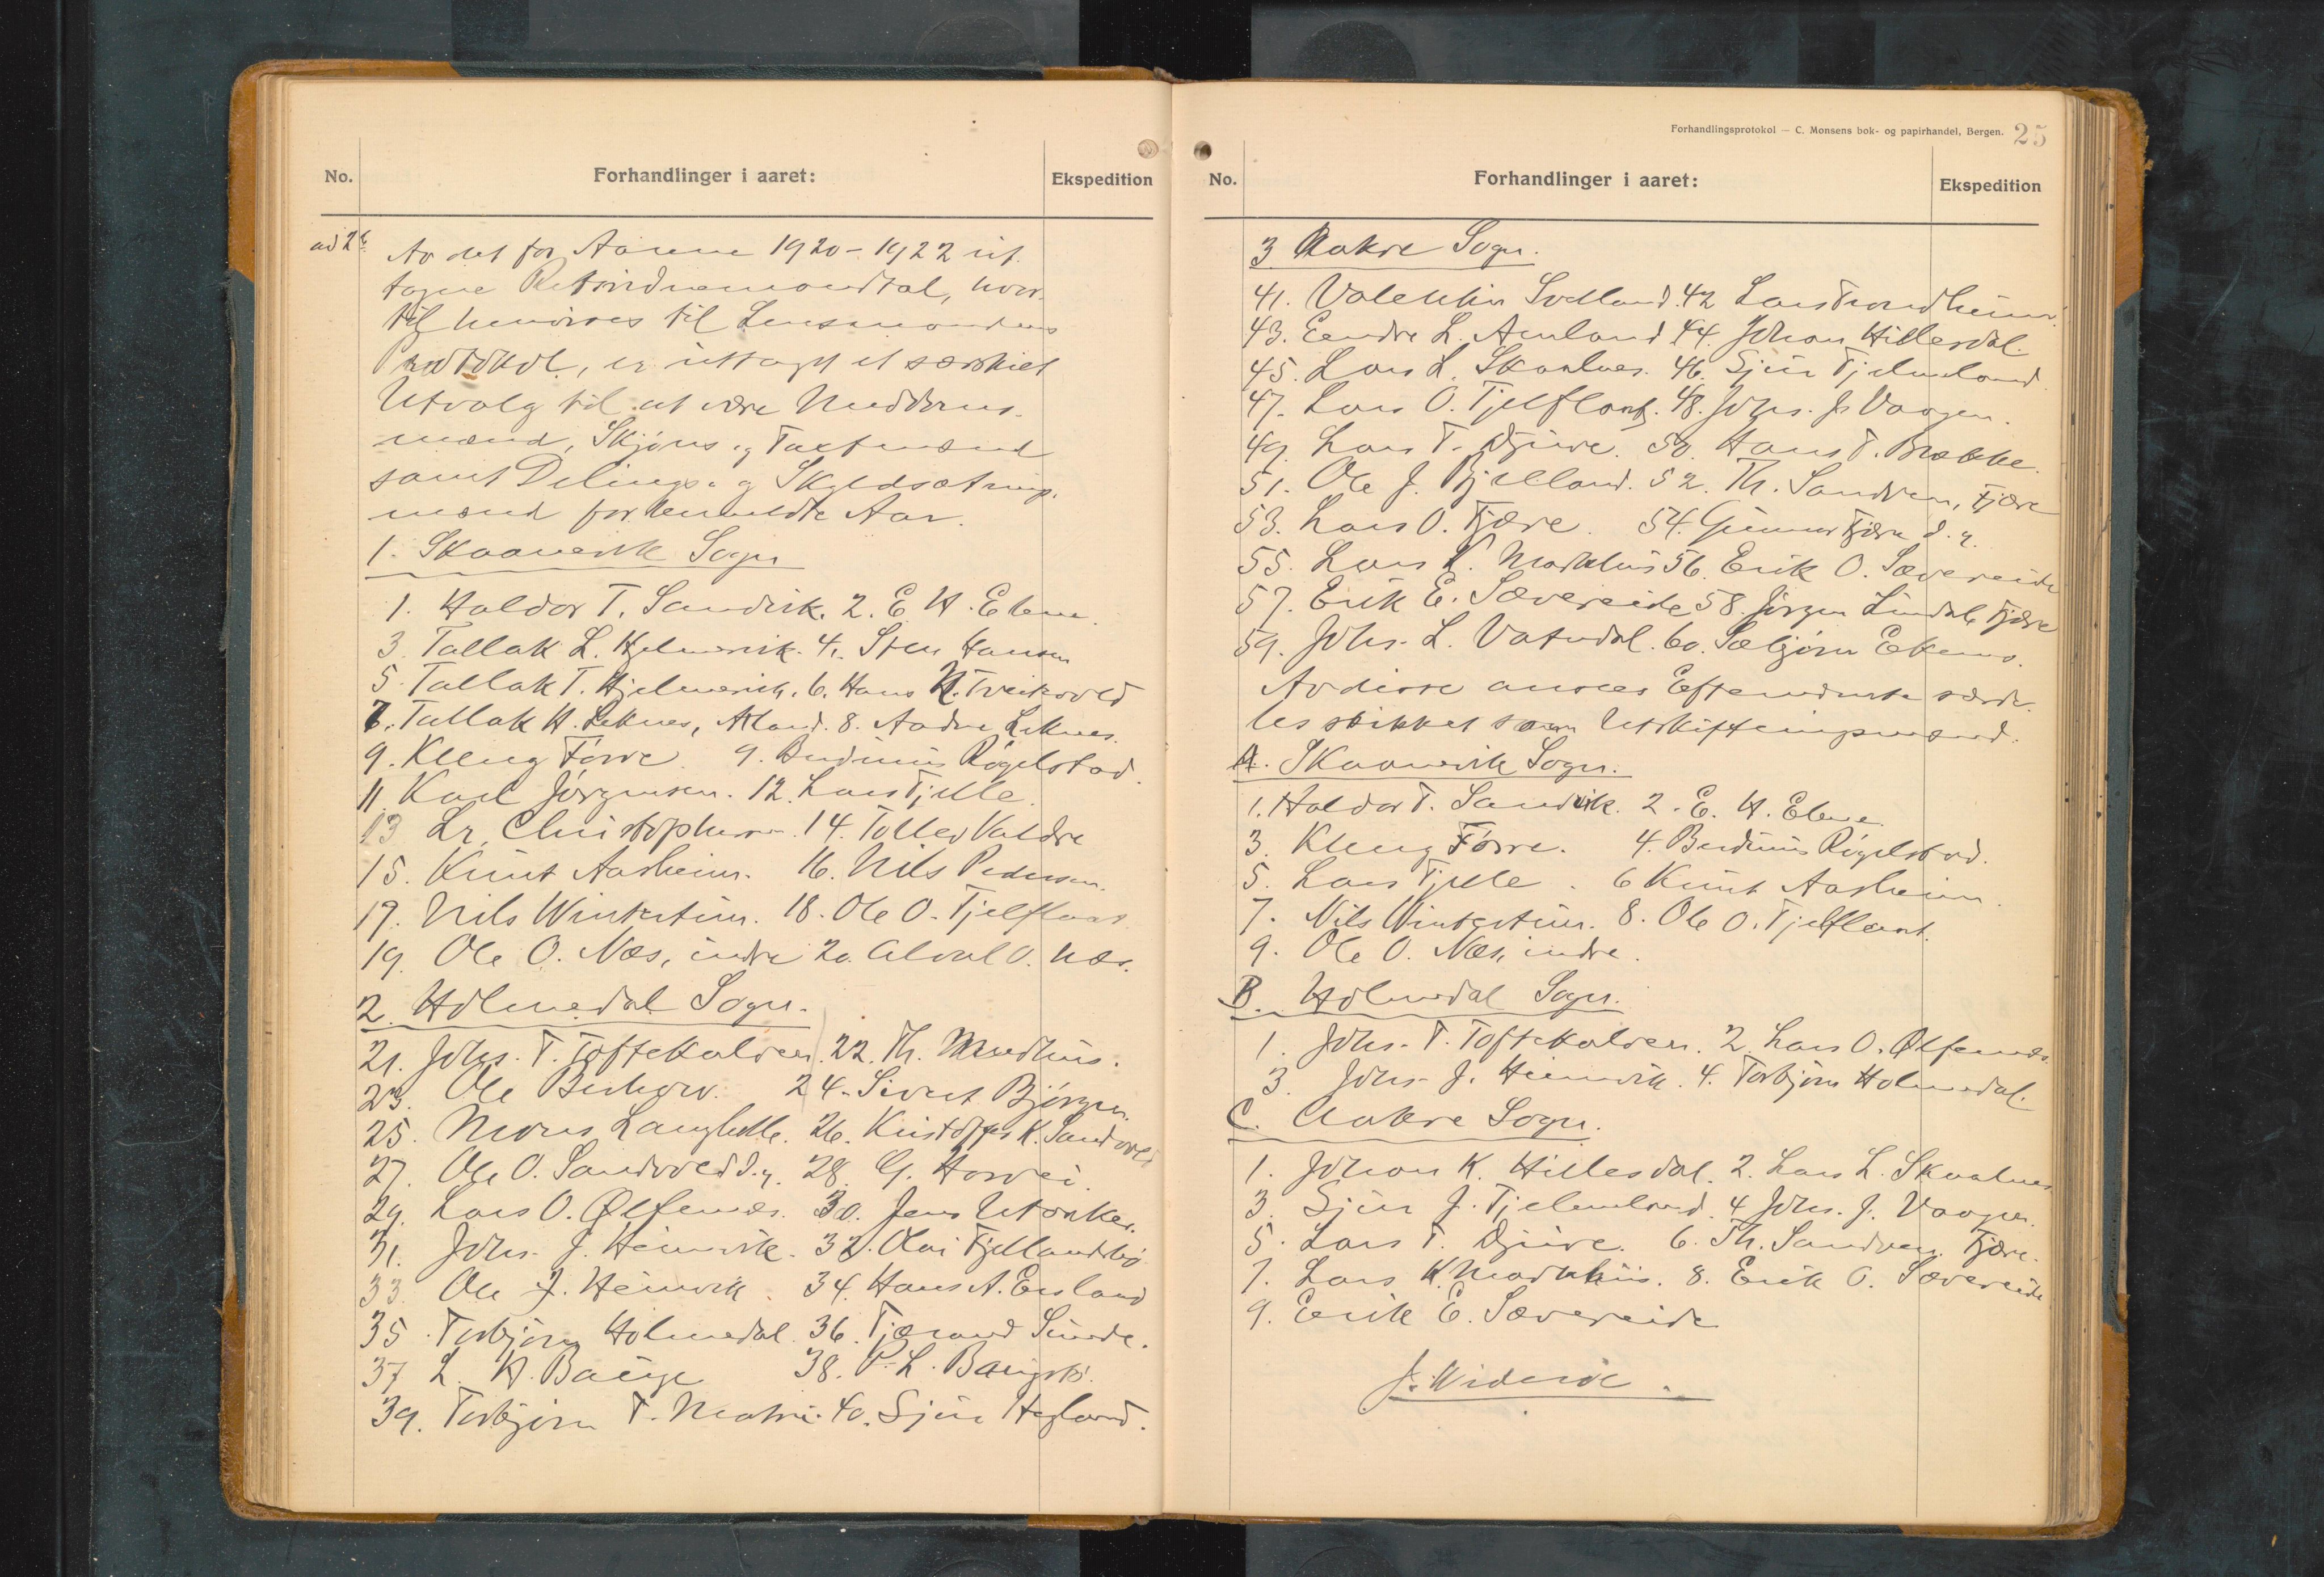 No.
Forhandlinger i aaret:
Ekspedition
ad 2b
Av det for Aarene 1920-1922 ut
tagne Retsvidnemandtal, hvor-
til henvises til Lensmandens
Protokol, er uttagt et særskilt
Utvalg til at være Meddoms-
mænd, Skjøns og Taxtmænd
samt Delings og Skyldsætnings
mænd for heromeldte Aar.
1. Skaanevik Sogn
1. Haldor T. Sandvik. 2. E. H. Ebne.
3. Tallak L. Hjelmevik. 4. Sten Hansen
5. Tallak T. Hjelmevik. 6. Hans N. Tveitevold
7. Tallak H. Leknes, Aland. 8. Aadne Leknes.
9. Kleng Førre 9. Berdinus Røgelstad.
11. Karl Jørgensen. 12. Lars Tjelle.
13 Lr. Christophersen. 14. Tollev Valdre
15. Knut Aasheim. 16. Nils Pedersen.
17. Nils Wintertun. 18. Ole O. Tjelflaat
19. Ole O. Næs, indre 20. Alval O. Næs.
2. Holmedal Sogn.
21. Johs. T. Toftekalven. 22. Th. Medhus.
23. Ole Berhow. 24. Sivert Bjørgen.
25. Mons Langhelle. 26. Kristoffer K. Sandvold
27. Ole O. Sandvold d.y. 28. G. Hovrei.
29. Lars O. Ølfernes. 30. Jens Utaaker.
31. Johs. J. Heimvik. 32. Olai Fjellandsbø
33. Ole J. Heimvik. 34. Hans A. Eisland
35. Torbjørn Holmedal. 36. Tjærand Sunde.
37 L. H. Bauge 38. P. L. Baugstø.
39. Torbjørn T. Matre. 40. Sjur Hegland.
Forhandlingsprotokol — C. Monsens bok- og papirhandel, Bergen. 25
No.
Forhandlinger i aaret:
Ekspedition
3. Aakre Sogn.
41. Valentin Svelland. 42 Lars Trondheim.
43. Eendre L. Amland. 44. Johan Hillesdal.
45. Lars L. Skaalnes. 46. Sjur Tjelmeland
47. Lars O. Tjelflaat. 48. Johs. J. Vaagen.
49. Lars T. Djuve. 50. Hans T. Brække.
51. Ole J. Fjelland. 52. Th. Sandven, Fjære
53. Lars O. Fjære. 54. Gunnar Fjære d.y.
55. Lars K. Markhus 56. Erik O. Sævereide
57. Erik E. Sævereide 58. Jørgen Lindal, Fjære
59. Johs. L. Vatndal. 60. Sæbjørn Ekenes.
Av disse ansees Efternævnte særde-
les skikket som Utskiftningsmænd.
A. Skaanevik Sogn.
1. Haldor T. Sandvik. 2. E. H. Ebne.
3. Kleng Førre. 4. Berdinus Røgelstad.
5. Lars Tjelle. 6 Knut Aasheim.
7. Nils Wintertun. 8. Ole O. Tjelflaat.
9. Ole O. Næs, indre.
B. Holmedal Sogn.
1. Johs. T. Toftekalven. 2. Lars O. Ølfernes.
3. Johs. J. Heimvik. 4. Torbjørn Holmedal.
C. Aakre Sogn.
1. Johan K. Hillesdal. 2. Lars L. Skaalnes
3. Sjur J. Tjelmeland. 4 Johs. J. Vaagen.
5. Lars T. Djuve. 6. Th. Sandven, Fjære.
7. Lars K. Markhus. 8. Erik O. Sævereide
9. Erik E. Sævereide
J. Widerøe.